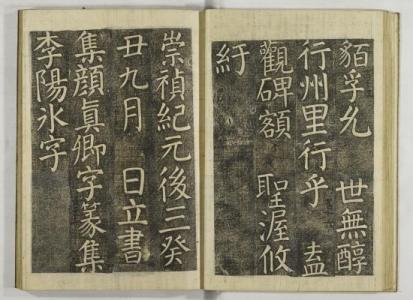 貊孚允 世無醇
行州里行乎 盍
觀碑額 聖渥攸
紆
崇禎紀元後三癸
丑九月 日立書
集顏真卿字篆集
李陽冰字